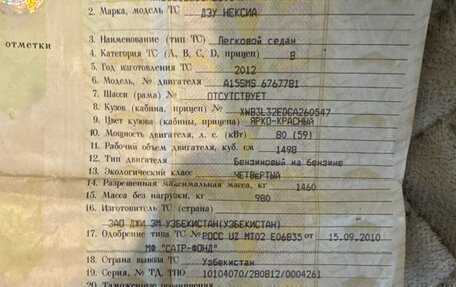 2. Марка, модель ТС ДЭУ НЕКСИА
отметки
3. Наименование (тип ТС) Легковой седан
4. Категория ТС (А, В, С, D, прицеп) В
5. Год изготовления ТС 2012
6. Модель, № двигателя A15SMS 6767781
7. Шасси (рама) № ОТСУТСТВУЕТ
8. Кузов (кабина, прицеп) № XWB3L32EDCA260547
9. Цвет кузова (кабины, прицепа) ЯРКО-КРАСНЫЙ
10. Мощность двигателя, л. с. (кВт) 80 (59)
11. Рабочий объем двигателя, куб. см 1498
12. Тип двигателя Бензиновый на бензине
13. Экологический класс ЧЕТВЕРТЫЙ
14. Разрешенная максимальная масса, кг 1460
15. Масса без нагрузки, кг 980
16. Изготовитель ТС (страна)
ЗАО ДЖИ ЭМ УЗБЕКИСТАН(УЗБЕКИСТАН)
17. Одобрение типа ТС № РОСС UZ МТ02 Е06835 от 15.09.2010
МФ "САТР-ФОНД"
18. Страна вывоза ТС Узбекистан
19. Серия, № ТД, ТПО 10104070/280812/0004261
20. Таможенные ограничения